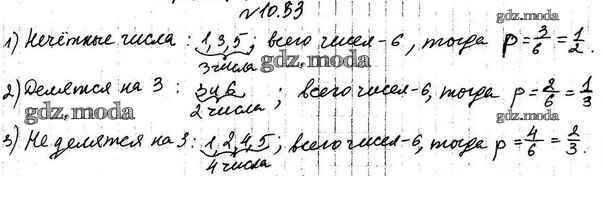 №10.33
gdz.moda
1) Нечётные числа: 1,3,5; всего чисел-6, тогда p=3/6=1/2.
3 числа
gdz.moda
2) Делятся на 3: 3 и 6; всего чисел-6, тогда p=2/6=1/3
gdz.moda 2 числа gdz.moda
3) Не делятся на 3: 1,2,4,5; всего чисел-6, тогда p=4/6=2/3.
4 числа